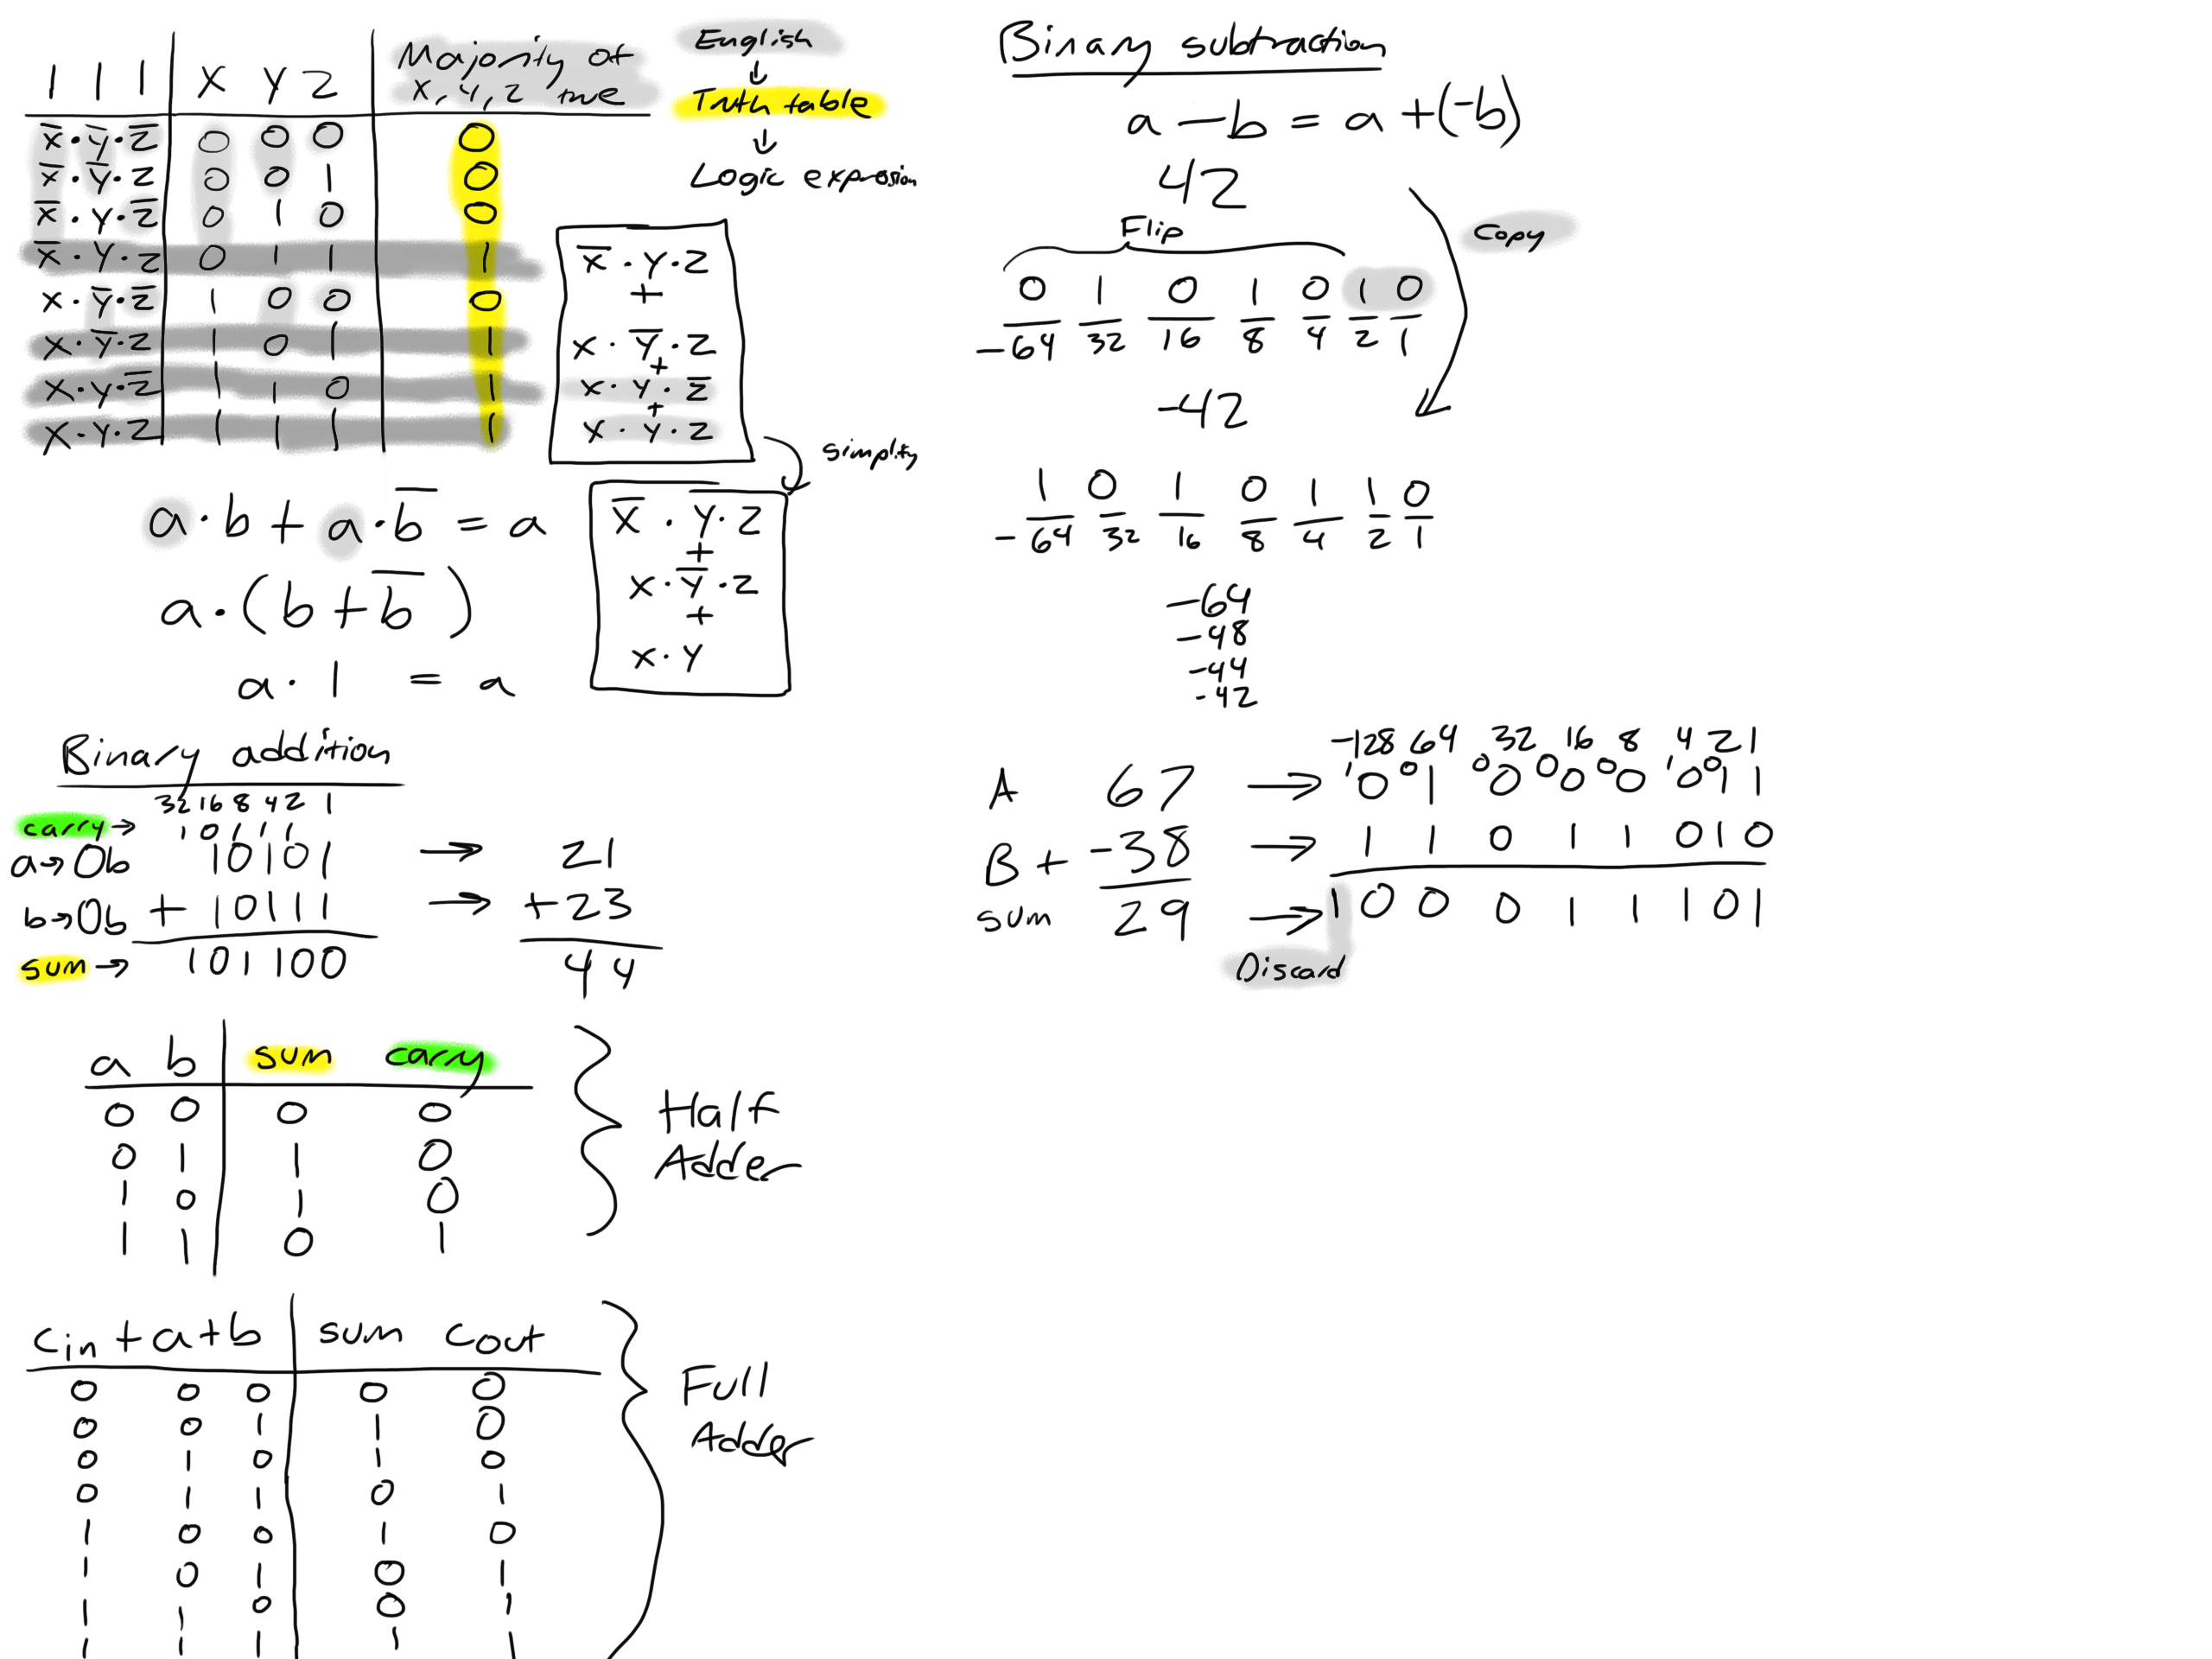 1 1 1 x y z Majority of
x, y, z true
x̅·y̅·z̅ 0 0 0 0
x̅·y̅·z 0 0 1 0
x̅·y·z̅ 0 1 0 0
x̅·y·z 0 1 1 1
x·y̅·z̅ 1 0 0 0
x·y̅·z 1 0 1 1
x·y·z̅ 1 1 0 1
x·y·z 1 1 1 1
English
↓
Truth table
↓
Logic expression
x̅·y·z
+
x·y̅·z
+
x·y·z̅
+
x·y·z
simplify
a·b + a·b̅ = a
a·(b + b̅)
a·1 = a
x̅·y·z
+
x·y̅·z
+
x·y
Binary addition
32 16 8 4 2 1
carry → 1 0 1 1 1
a → 0b 10101 → 21
b → 0b + 10111 → +23
sum → 101100 44
a b sum carry
0 0 0 0
0 1 1 0
1 0 1 0
1 1 0 1
Half
Adder
Cin + a + b sum Cout
0 0 0 0 0
0 0 1 1 0
0 1 0 1 0
0 1 1 0 1
1 0 0 1 0
1 0 1 0 1
1 1 0 0 1
1 1 1 1 1
Full
Adder
Binary subtraction
a - b = a + (-b)
42
Flip
Copy
0 1 0 1 0 1 0
-64 32 16 8 4 2 1
-42
1 0 1 0 1 1 0
-64 32 16 8 4 2 1
-64
-48
-44
-42
-128 64 32 16 8 4 2 1
1 0 0 0 0 1 0
A 67 → 0 1 0 0 0 0 1 1
B + -38 → 1 1 0 1 1 0 1 0
sum 29 → 1 0 0 0 1 1 1 0 1
Discard